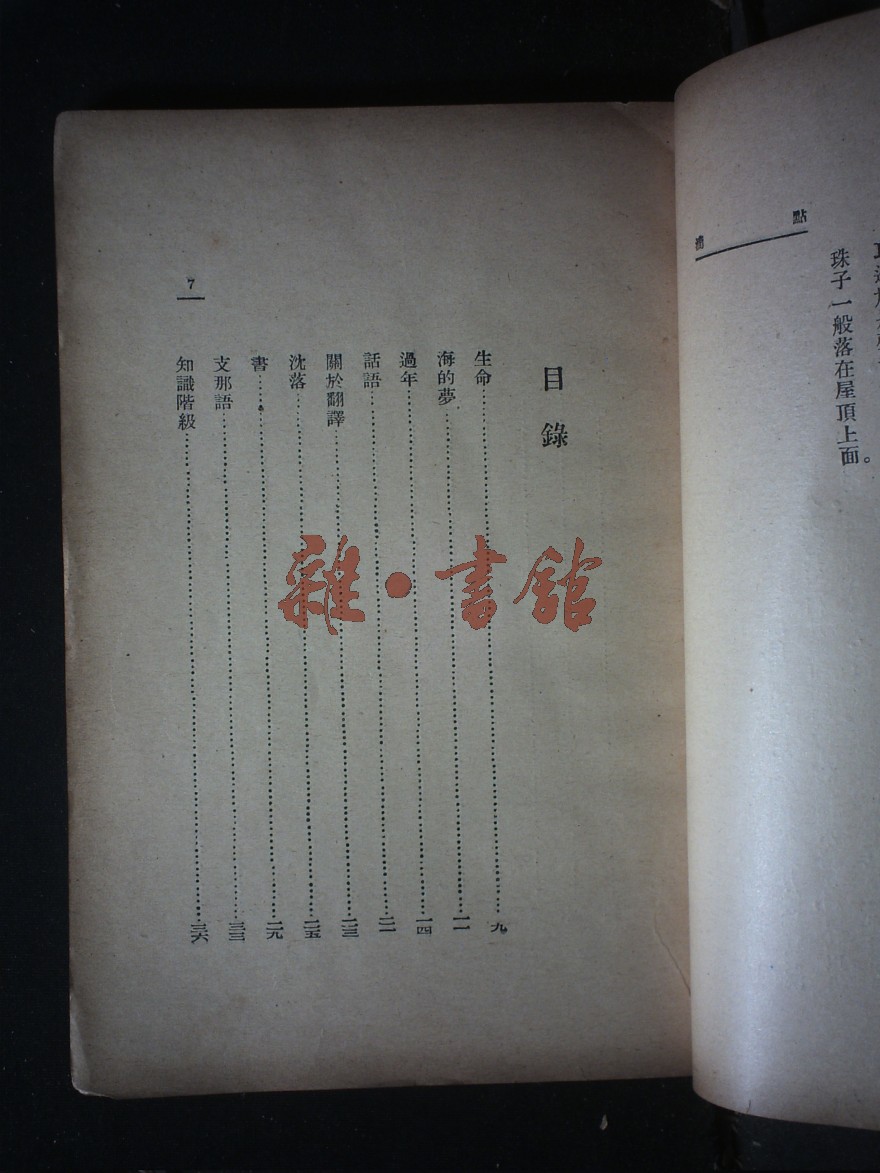 點滴
珠子一般落在屋頂上面。
目錄
生命……九
海的夢……一一
過年……一四
話語……二一
關於翻譯……二三
沈落……二五
書……二九
支那語……三三
知識階級……三六
7
雜·書館